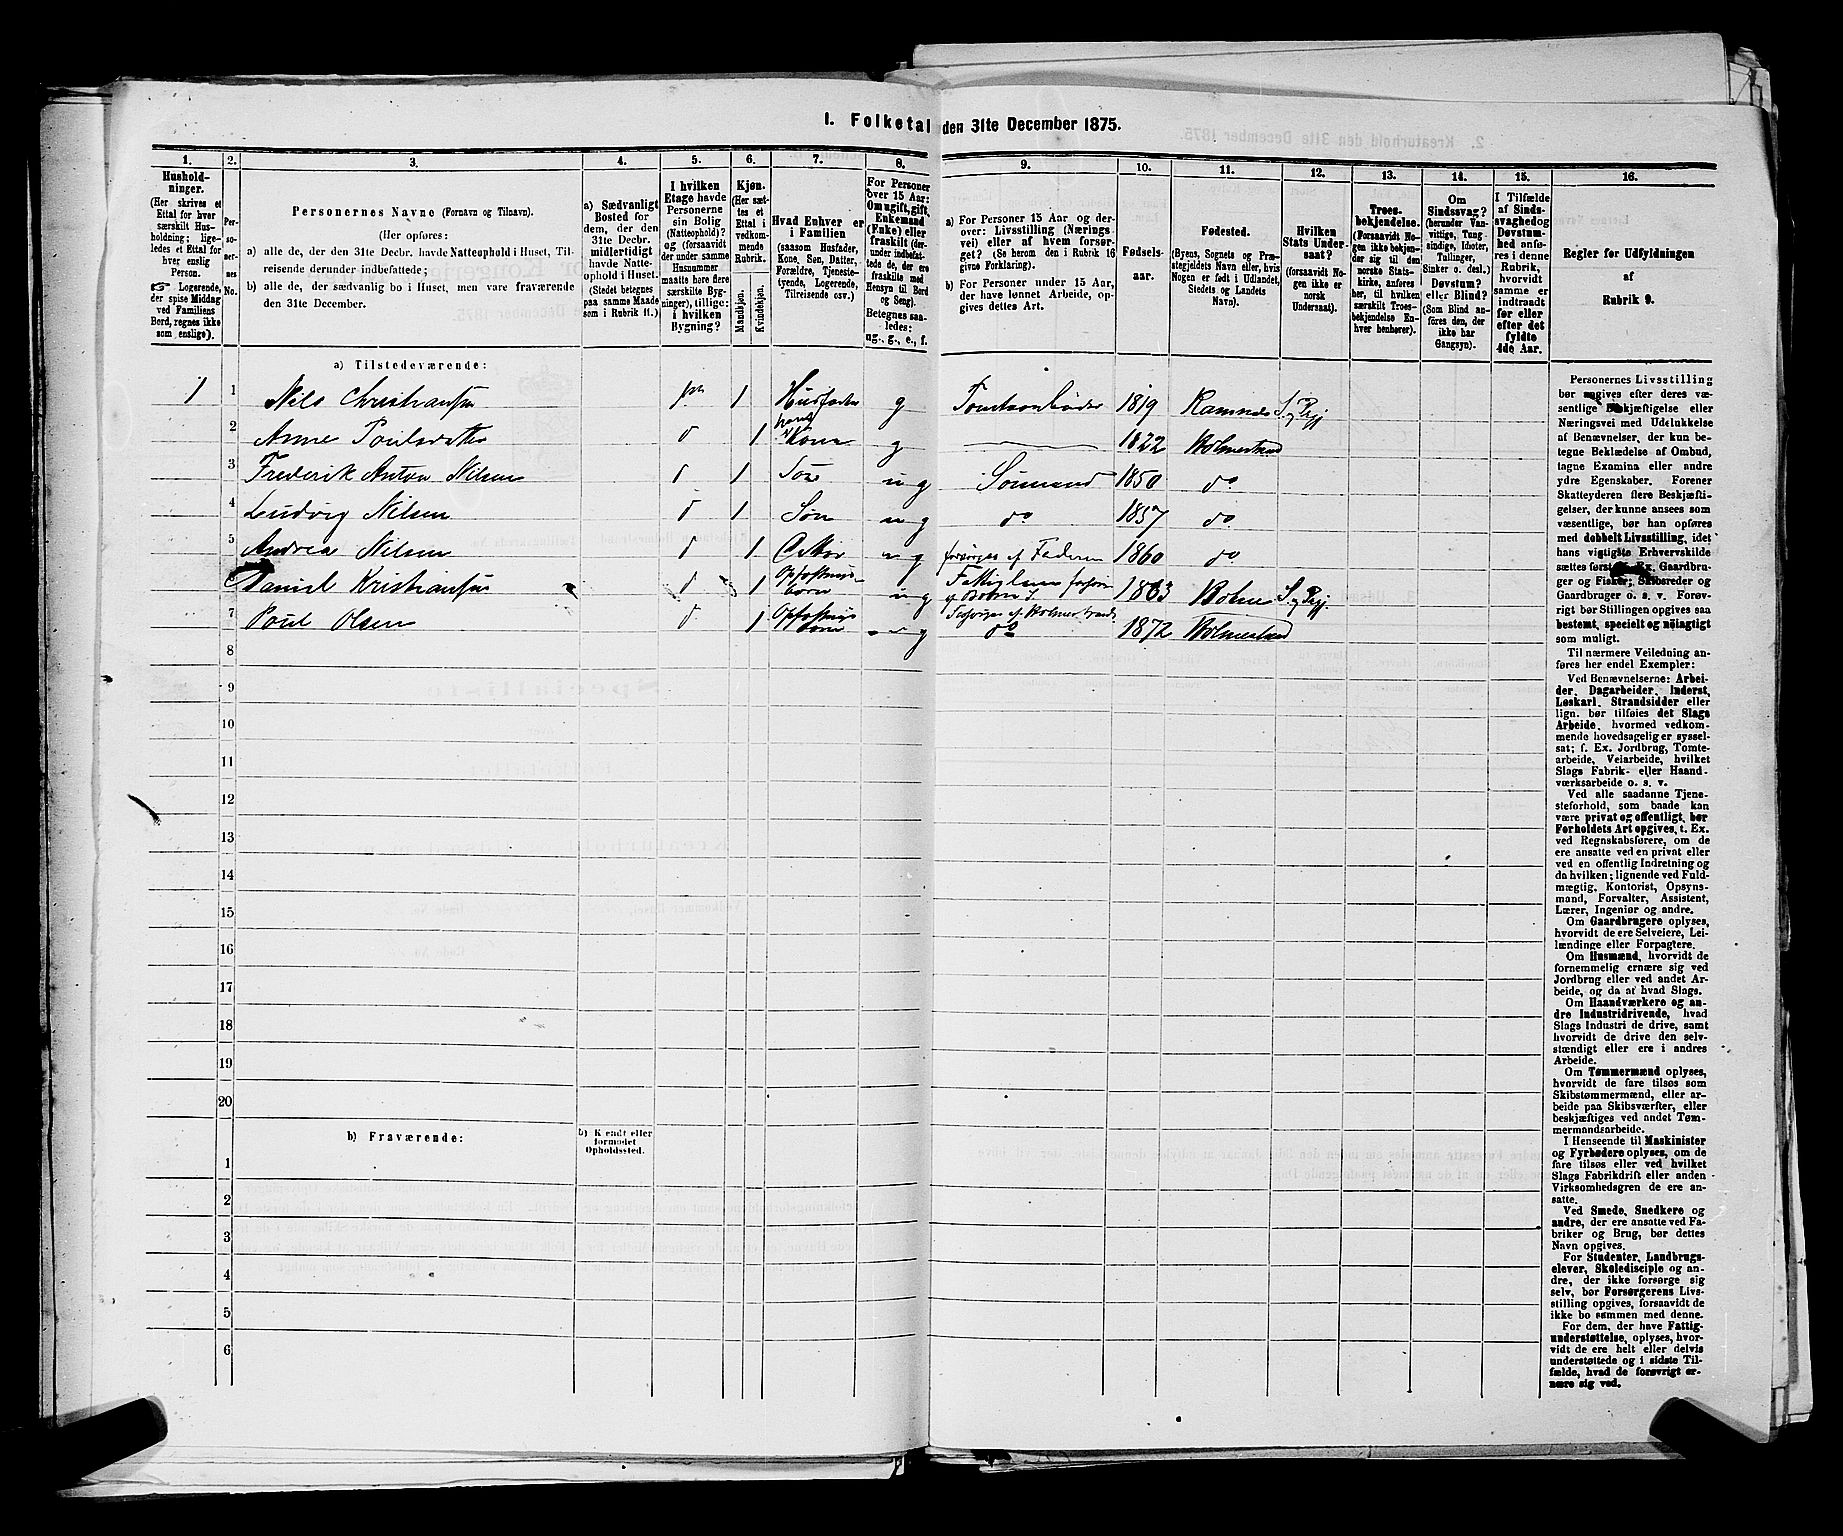 1. Folketal den 31te December 1875.
1.
Hushold-
ninger.
(Her skrives et
Ettal for hver
særskilt Hus-
holdning; lige-
ledes et Ettal for
hver enslig
Person.
☞ Logerende,
der spise Middag
ved Familiens
Bord, regnes ikke
som enslige).
2.
Per-
so-
ner-
nes
No.
3.
Personernes Navne (Fornavn og Tilnavn).
(Her opføres:
a) alle de, der den 31te Decbr. havde Natteophold i Huset, Til-
reisende derunder indbefattede;
b) alle de, der sædvanlig bo i Huset, men vare fraværende
den 31te December.
4.
a) Sædvanligt
Bosted for
dem, der den
31te Decbr.
midlertidigt
havde Natte-
ophold i Huset.
(Stedet betegnes
paa samme Maade
som i Rubrik 11.)
5.
I hvilken
Etage havde
Personerne
sin Bolig
(Natteophold)?
og (forsaavidt
der under samme
Husnummer
maatte høre flere
særskilte Byg-
ninger), tillige:
i hvilken
Bygning?
6.
Kjøn.
(Her sæt-
tes et
Ettal i
vedkom-
mende
Rubrik.
Mandkjøn.
Kvindekjøn.
7.
Hvad Enhver er
i Familien
(saasom Husfader,
Kone, Søn, Datter,
Forældre, Tjeneste-
tyende, Logerende,
Tilreisende osv.)
8.
For Personer
over 15 Aar:
Om ugift, gift,
Enkemand
(Enke) eller
fraskilt (der-
under indbefat-
tede de, der ere
fraskilte med
Hensyn til Bord
og Seng).
Betegnes saa-
ledes:
ug., g., e., f.
9.
a) For Personer 15 Aar og der-
over: Livsstilling (Nærings-
vei) eller af hvem forsør-
get? (Se herom den i Rubrik 16
givne Forklaring).
b) For Personer under 15 Aar,
der have lønnet Arbeide, op-
gives dettes Art.
10.
Fødsels-
aar.
11.
Fødested.
(Byens, Sognets og Præ-
stegjeldets Navn eller, hvis
Nogen er født i Udlandet,
Stedets og Landets
Navn).
12.
Hvilken
Stats Under-
saat?
(forsaavidt No-
gen ikke er
norsk
Undersaat).
13.
Troes-
bekjendelse.
(Forsaavidt No-
gen ikke bekjen-
der sig til den
norske Stats-
kirke, anføres
her, til hvilken
særskilt Troes-
bekjendelse En-
hver henhører).
14.
Om
Sindssvag?
(herunder Van-
vittige, Tung-
sindige, Idioter,
Tullinger,
Sinker o. desl.)
Døvstum?
eller Blind?
(Som Blind an-
føres den, der
ikke har
Gangsyn).
15.
I Tilfælde
af Sinds-
svaghed og
Døvstum-
hed anfø-
res i denne
Rubrik,
hvorvidt
samme er
indtraadt
før eller
efter det
fyldte
4de Aar.
16.
Regler for Udfyldningen
af
Rubrik 9.
a) Tilstedeværende:
1 1 Nils Christiansen 1ste 1 Husfader g 1819 Ramnæs S. Pgj
2 Anne Poulsdatter d 1 hans Kone g 1822 Holmestrand
3 Frederik Anton Nilsen d 1 Søn ug Sømand 1850 do
4 Ludvig Nilsen d 1 Søn ug do 1857 do
5 Andrea Nilsen d 1 Datter ug forsørges af Faderen 1860 do
6 Daniel Kristiansen d 1 Opfostrings-
barn ug 1863 Botne S. Pgj.
7 Poul Olsen d 1 Opfostrings
barn ug do 1872 Holmestrand
8
9
10
11
12
13
14
15
16
17
18
19
20
b) Fraværende:
b) Kjendt eller
formodet
Opholdssted.
1
2
3
4
5
6
Personernes Livsstilling
bør angives efter deres væ-
sentlige Beskjæftigelse eller
Næringsvei med Udelukkelse
af Benævnelser, der kun be-
tegne Beklædelse af Ombud,
tagne Examina eller andre
ydre Egenskaber. Forener
Skatteyderen flere Beskjæfti-
gelser, der kunne ansees som
væsentlige, bør han opføres
med dobbelt Livsstilling, idet
hans vigtigste Erhvervskilde
sættes først; f. Ex. Gaardbru-
ger og Fisker; Skibsreder og
Gaardbruger o. s. v. Forøv-
rigt bør Stillingen opgives saa
bestemt, specielt og nöiagtigt
som muligt.
Til nærmere Veiledning an-
føres her endel Exempler:
Ved Benævnelserne: Arbei-
der, Dagarbeider, Inderst,
Løskarl, Strandsidder eller
lign. bør tilføies det Slags
Arbeide, hvormed vedkom-
mende hovedsagelig er syssel-
sat; f. Ex. Jordbrug, Tomte-
arbeide, Veiarbeide, hvilket
Slags Fabrik- eller Haand-
værksarbeide o. s. v.
Ved alle saadanne Tjene-
steforhold, som baade kan
være privat og offentligt, bør
Forholdets Art opgives, t. Ex.
ved Regnskabsførere, om de
ere ansatte ved en privat eller
ved en offentlig Indretning og
da hvilken; lignende ved Fuld-
mægtig, Kontorist, Opsyns-
mand, Forvalter, Assistent,
Lærer, Ingeniør og andre.
Om Gaardbrugere oplyses,
hvorvidt de ere Selveiere, Lei-
lændinge eller Forpagtere.
Om Husmænd, hvorvidt de
fornemmelig ernære sig ved
Jordbrug eller ved andet Ar-
beide, og da af hvad Slags.
Om Haandværkere og an-
dre Industridrivende, hvad
Slags Industri de drive, samt
hvorvidt de drive den selv-
stændigt eller ere i andres
Arbeide.
Om Tømmermænd oplyses,
hvorvidt de fare tilsøs som
Skibstømmermænd, eller ar-
beide paa Skibsværfter, eller
beskjæftiges ved andet Tøm-
mermandsarbeide.
I Henseende til Maskinister
og Fyrbødere oplyses, om de
fare tilsøs eller ved hvilket
Slags Fabrikdrift eller anden
Virksomhedsgren de ere an-
satte.
Ved Smede, Snedkere og
andre, der ere ansatte ved Fa-
briker og Brug, bør dettes
Navn opgives.
For Studenter, Landbrugs-
elever, Skoledisciple og an-
dre, der ikke forsørge sig
selv, bør Forsørgerens Livs-
stilling opgives, forsaavidt de
ikke bo sammen med denne.
For dem, der have Fattig-
understøttelse, oplyses, hvor-
vidt de ere helt eller delvis
understøttede og i sidste Til-
fælde, hvad de forøvrigt er-
nære sig ved.